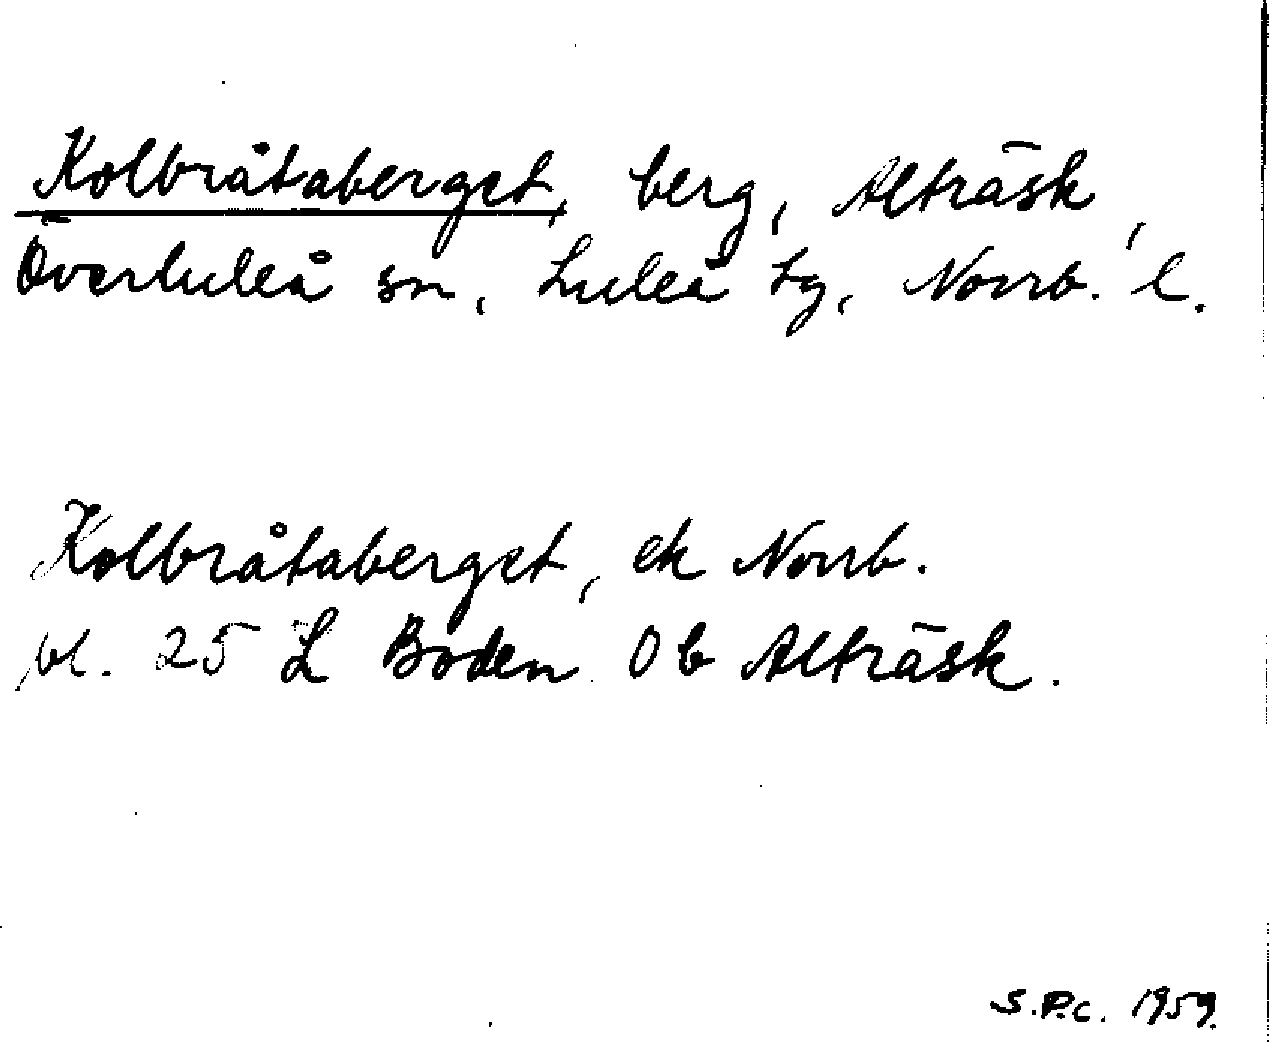 Kolbråtaberget, berg, Alträsk,
Överluleå sn, Luleå tg, Norrb. l.
Kolbråtaberget, ek Norrb.
bl. 25 L Boden Ob Alträsk.
S.P.C. 1959.